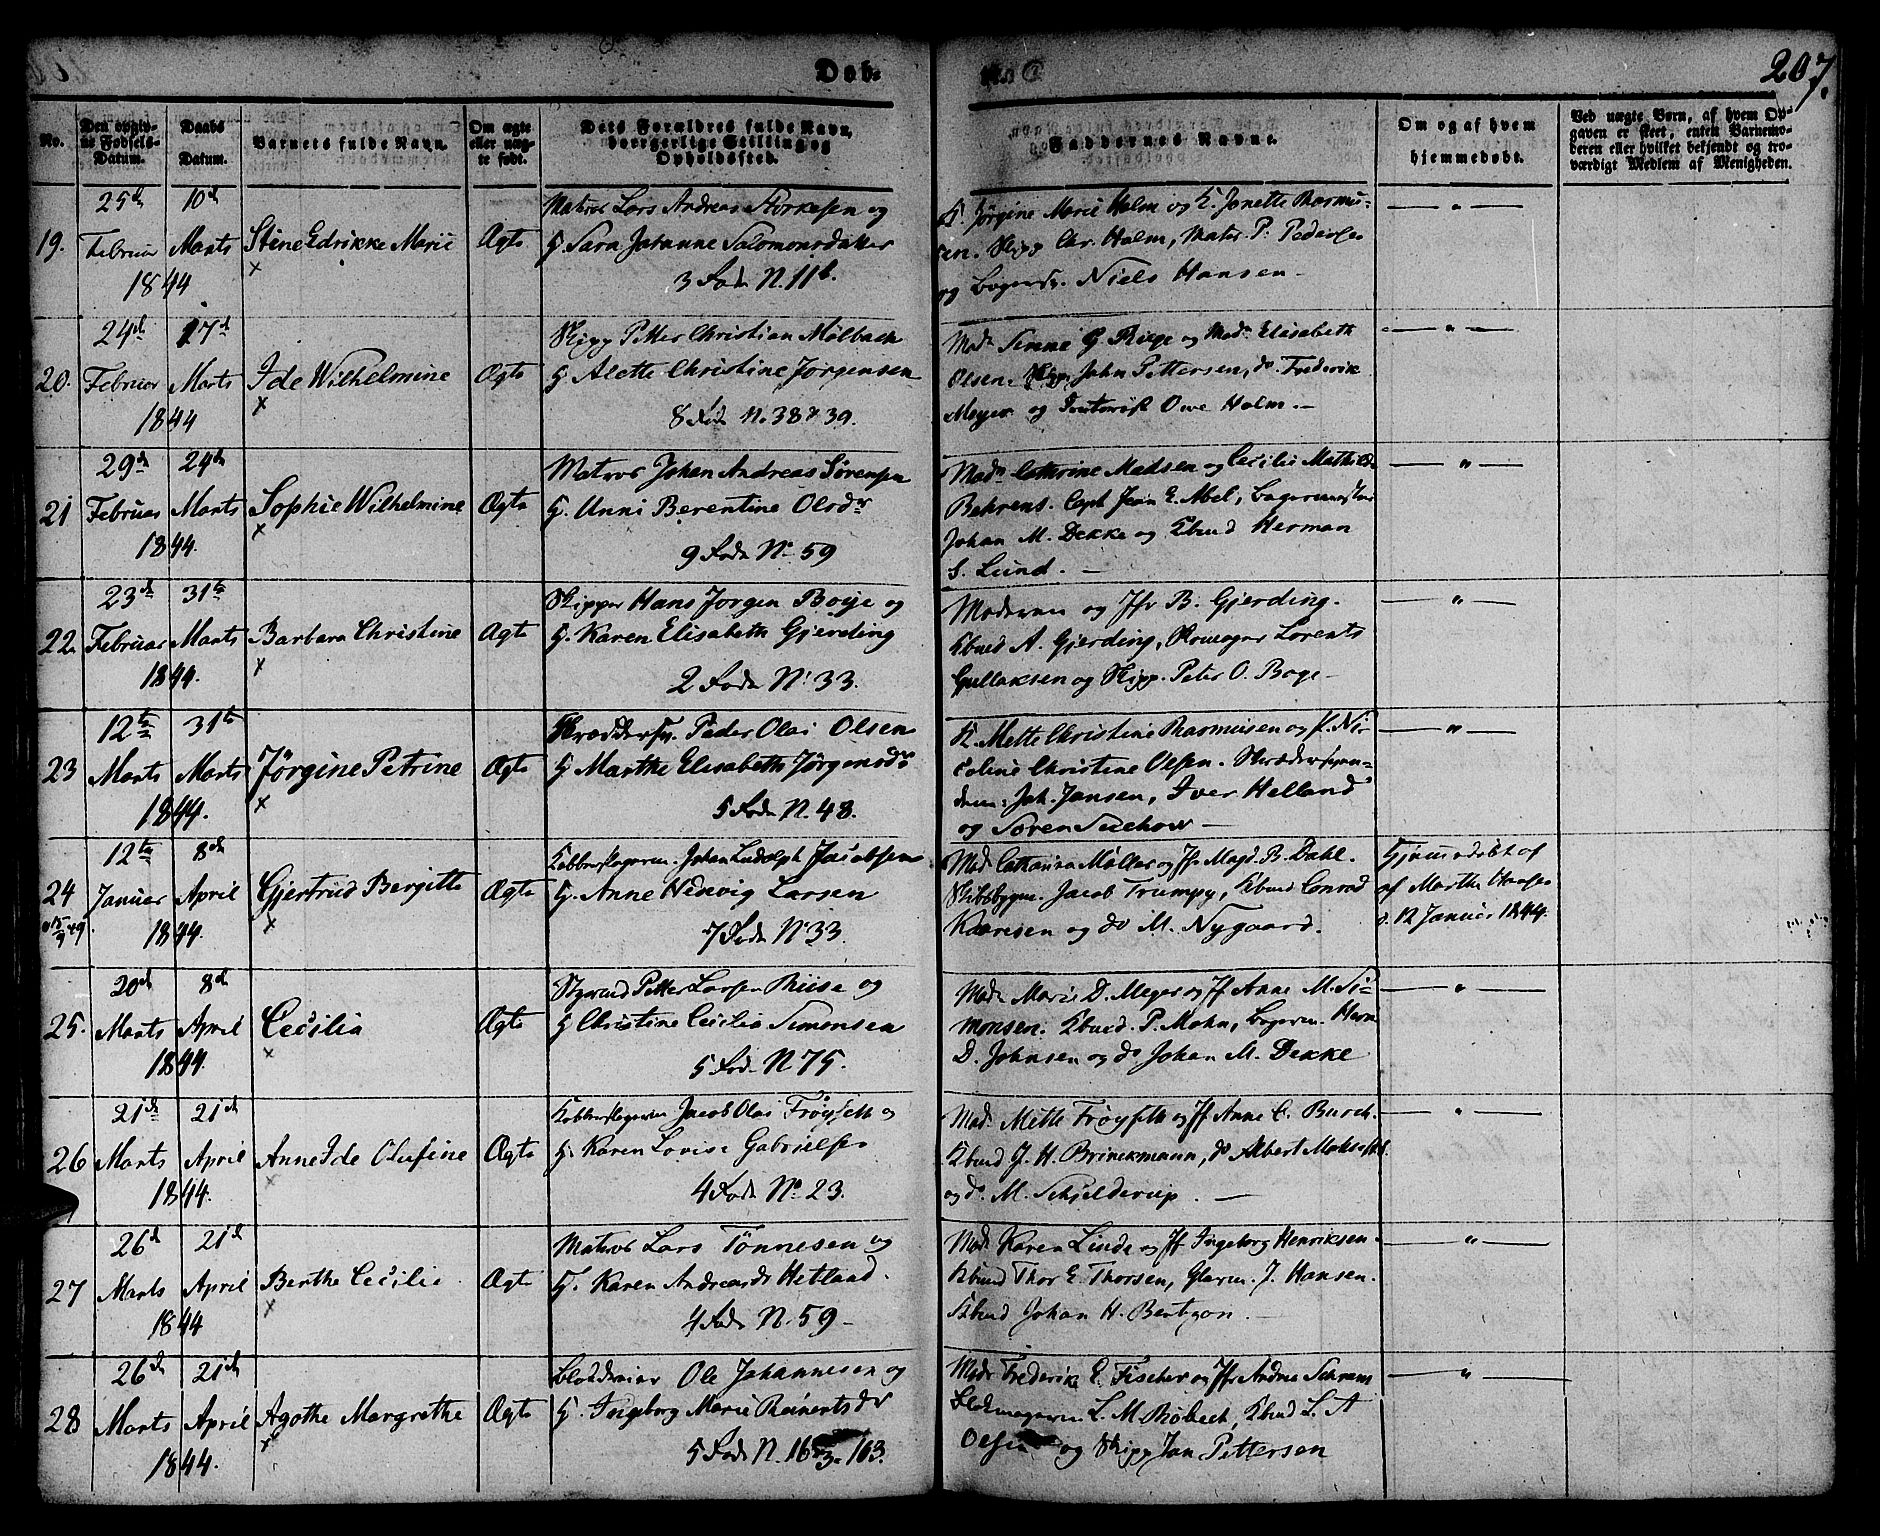 Døb-
207.
No.
Den opgiv-
ne Fødsels-
Datum.
Daabs
Datum.
Barnets fulde Navn.
Om ægte
eller uæg-
te født.
Dets Forældres fulde Navn,
borgerlige Stilling og
Opholdssted.
Faddernes Navne.
Om og af hvem
hjemmedøbt.
Ved uægte Børn, af hvem Op-
gaven er skeet, enten Barnemo-
deren eller hvilket bekjendt og tro-
værdigt Medlem af Menigheden.
19.
25de Februar 1844
10de Marts
Stine Edrikke Marie
x
Ægte
Matros Lars Andreas Storkesen og
H. Sara Johanne Salomonsdatter
3 Rode N. 11b.
K. Jörgine Marie Holm og K. Janette Rasmu-
sen. Skipp Chr. Holm, Matr. P. Peders
og Bagersv. Niels Hansen -
— " —
20.
24de Februar 1844
17de Marts
Ide Wilhelmine
x
Ægte
Skipp Petter Christian Mölbach
H Alette Christine Jörgensen
8 Rode N. 38 & 39.
Olsen. Skipp John Pettersen, do Frederik
Meyer og Owe Holm. -
— " —
21
29de Februar 1844.
24de Marts
Sophie Wilhelmine
x
Ægte
Matros Johan Andreas Sörensen
H. Unni Berentine Olsdr
9 Rode No 59
Madm Cathrine Madsen og Cecilie Mathilde
Behrens. Capt Jean E. Abel, Bagermester
Johan M. Dekke og Kbmd Herman
S. Lund. -
— " —
22
23de Februar 1844.
31te Marts
Barbara Christine
x
Ægte
Skipper Hans Jörgen Boye og
H. Karen Elisabeth Gjerding
2 Rode N. 33.
Moderen og Jfr B. Gjerding.
Kbmd A. Gjerding, Skomager Lorents
Gullaksen og Skipp. Peter O. Boge -
— " —
23
12te Marts 1844.
31te Marts
Jörgine Petrine
x
Ægte
Skræddersv. Peder Olai Olsen
H Marthe Elisabeth Jörgensdr
5 Rode N. 48.
K. Mette Christine Rasmusen og P. Ni-
coline Christine Olsen. Skræddersven-
dene: Joh. Jansen, Iver Helland
og Sören Suchow -
— " —
24
12te Januar 1844.
8de April
Gjertrud Bergitte
x
Ægte
Kobberslagerm. Johan Ludolph Jacobsen
H. Anne Hedevig Larsen
7 Rode N 33.
Mad. Cathrina Möller og Jfr Magd. B. Dahl.
Skibsbygm. Jacob Trumpy, Kbmd Conrad
og do M. Nygaard.
Hjemmedöbt af
af Marthe
d. 12 Januar 1844.
25.
20de Marts 1844.
8de April
Cecilia
x
Ægte
Styrmd Petter Larsen Riise og
H Christine Cecilia Simonsen
5 Rode N 75.
Madm Marie D. Meyer og Jf Anne M. Si-
monsen. Kbmd. P. Mohn, Bagerm. Herm
D. Johnsen og do Johan M. Dekke
— " —
26
21de Marts 1844.
21de April
Anne Ide Olufine
x
Ægte
Kobberslagerm Jacob Olai Fröyseth og
H. Karen Lovise Gabrielsen
4 Rode No 23.
Mad. Mette Fröyseth og Jf Anne C. Busch.
Kbmd J. H. Brinckmann, do Albert
og do. M. Schjelderup. -
— " —
27
26de Marts 1844
21de April
Berthe Cecilie
x
Ægte
Matros Lars Tönnesen og
H. Karen Andreasdr Hetland.
4 Rode N. 59 -
Mad. Karen Linde og Jf Ingeborg Henriksen.
Kbmd Thor E. Thorsen, Glarm. J. Hansen.
Kbmd Johan H. Bentzon. -
— " —
28
26de Marts 1844.
21de April
Agathe Margrethe
x
Ægte
Ole Johannesen og
H. Ingeborg Marie Reinertsdr
5 Rode N. 163.
Madm Frederik E. Fischer og Jfr Andrea Schram
L. M. Böbach, Kbmd L. A
Olsen og Skipp Jan Pettersen
— " —